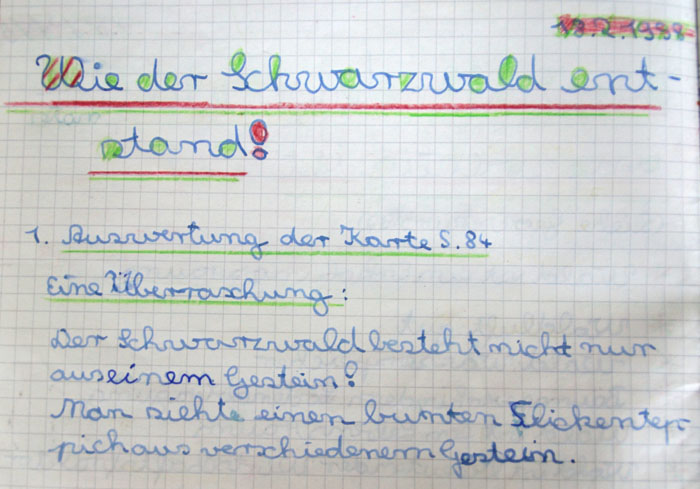 19.2.1998
Wie der Schwarzwald ent-
stand!
1. Auswertung der Karte S. 84
Eine Überraschung:
Der Schwarzwald besteht nicht nur
aus einem Gestein!
Man siehte einen bunten Flickentep-
pich aus verschiedenem Gestein.